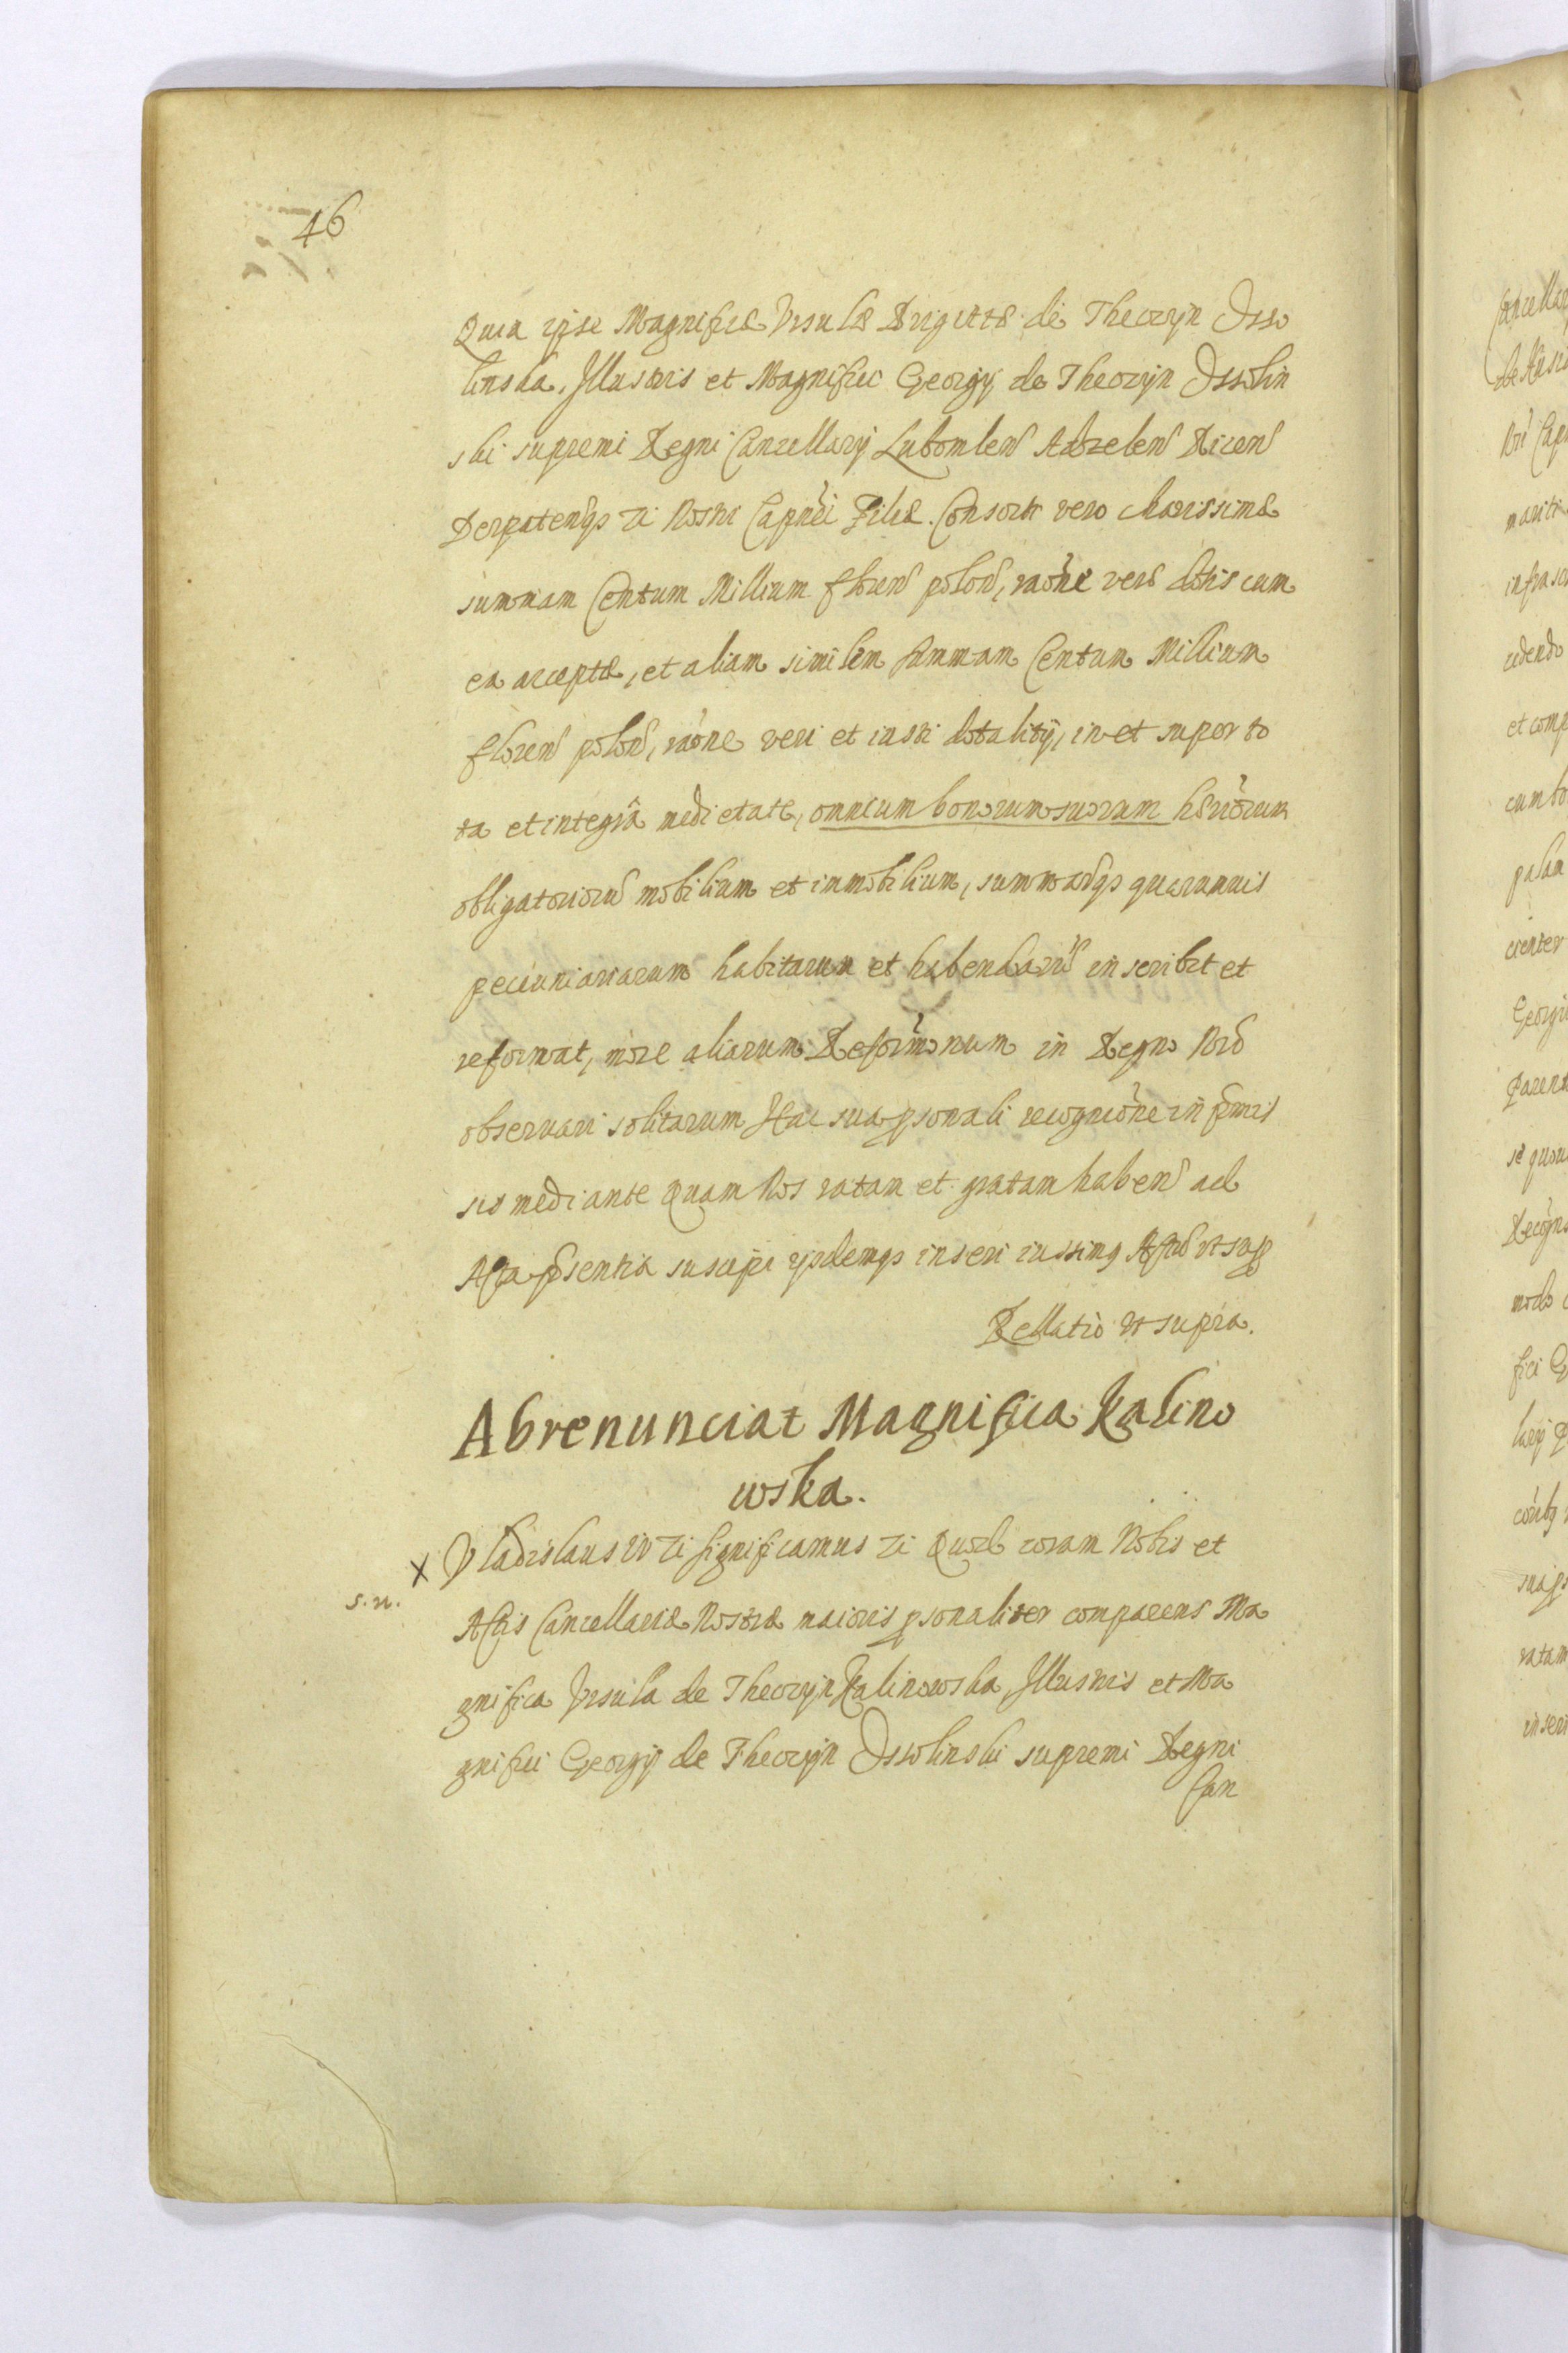 46
Quia ipse Magnificæ Vrsulæ Brigittæ de Theczyn Osso
linska, Illustris et Magnifici Georgij de Theczyn Ossolin
ski supremi Regni Cancellarij Lubomlen Adzelen Bicen
Derpatenqz zc Nostri Capnei Filiæ. Consorti vero charissimæ
summam Centum Millium floren polon, raone veræ dotis cum
ea acceptæ, et aliam similem summam Centum Millium
floren polon, raone veri et iusti dotalitij, in et super to
ta et integra medietate, omnium bonorum suorum hæriorum
obligatoriorum mobilium et immobilium, summarqz quarumuis
pecuniariarum habitarum et habendarum inscribit et
reformat, more aliarum Reformonum in Regno Nro
obseruari solitarum Hac sua psonali recognicone in pmis
sis mediante Quam Nos ratam et gratam haben ad
Acta psentia suscipi ijsdemqz inseri iussimus Actu vt sup
Rellatio vt supra.
Abrenunciat Magnifica Kalino
wska.
X Vladislaus IV zc significamus zc Quod coram Nobis et
s. n.
Actis Cancellariæ Nostræ maioris psonaliter comparens Ma
gnifica Vrsula de Theczyn Kalinowska, Illustris et Ma
gnifici Georgij de Theczyn Ossolinski supremi Regni
Can